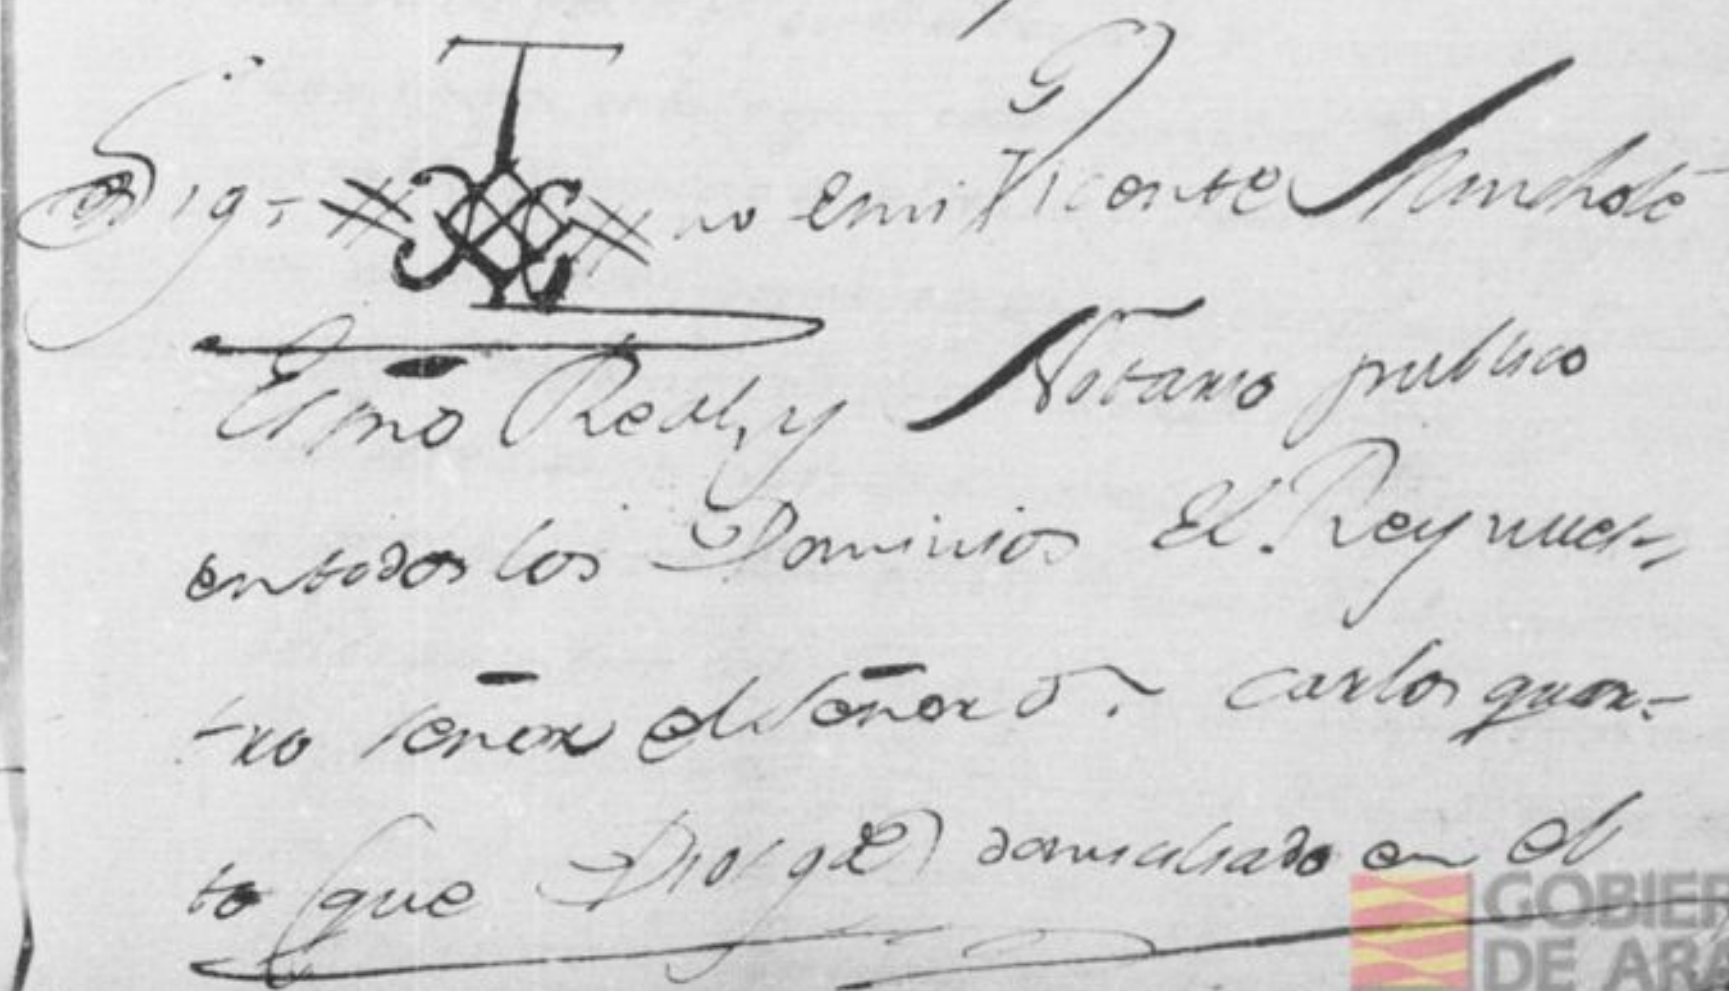 Sig- no de mi Vicente Mancholé
Esno Real, y Notario publico
en todos los Dominios el Rey nues-
tro señor el señor D. Carlos quar-
to (que Dios gde) domiciliado en el
GOBIER
DE ARA